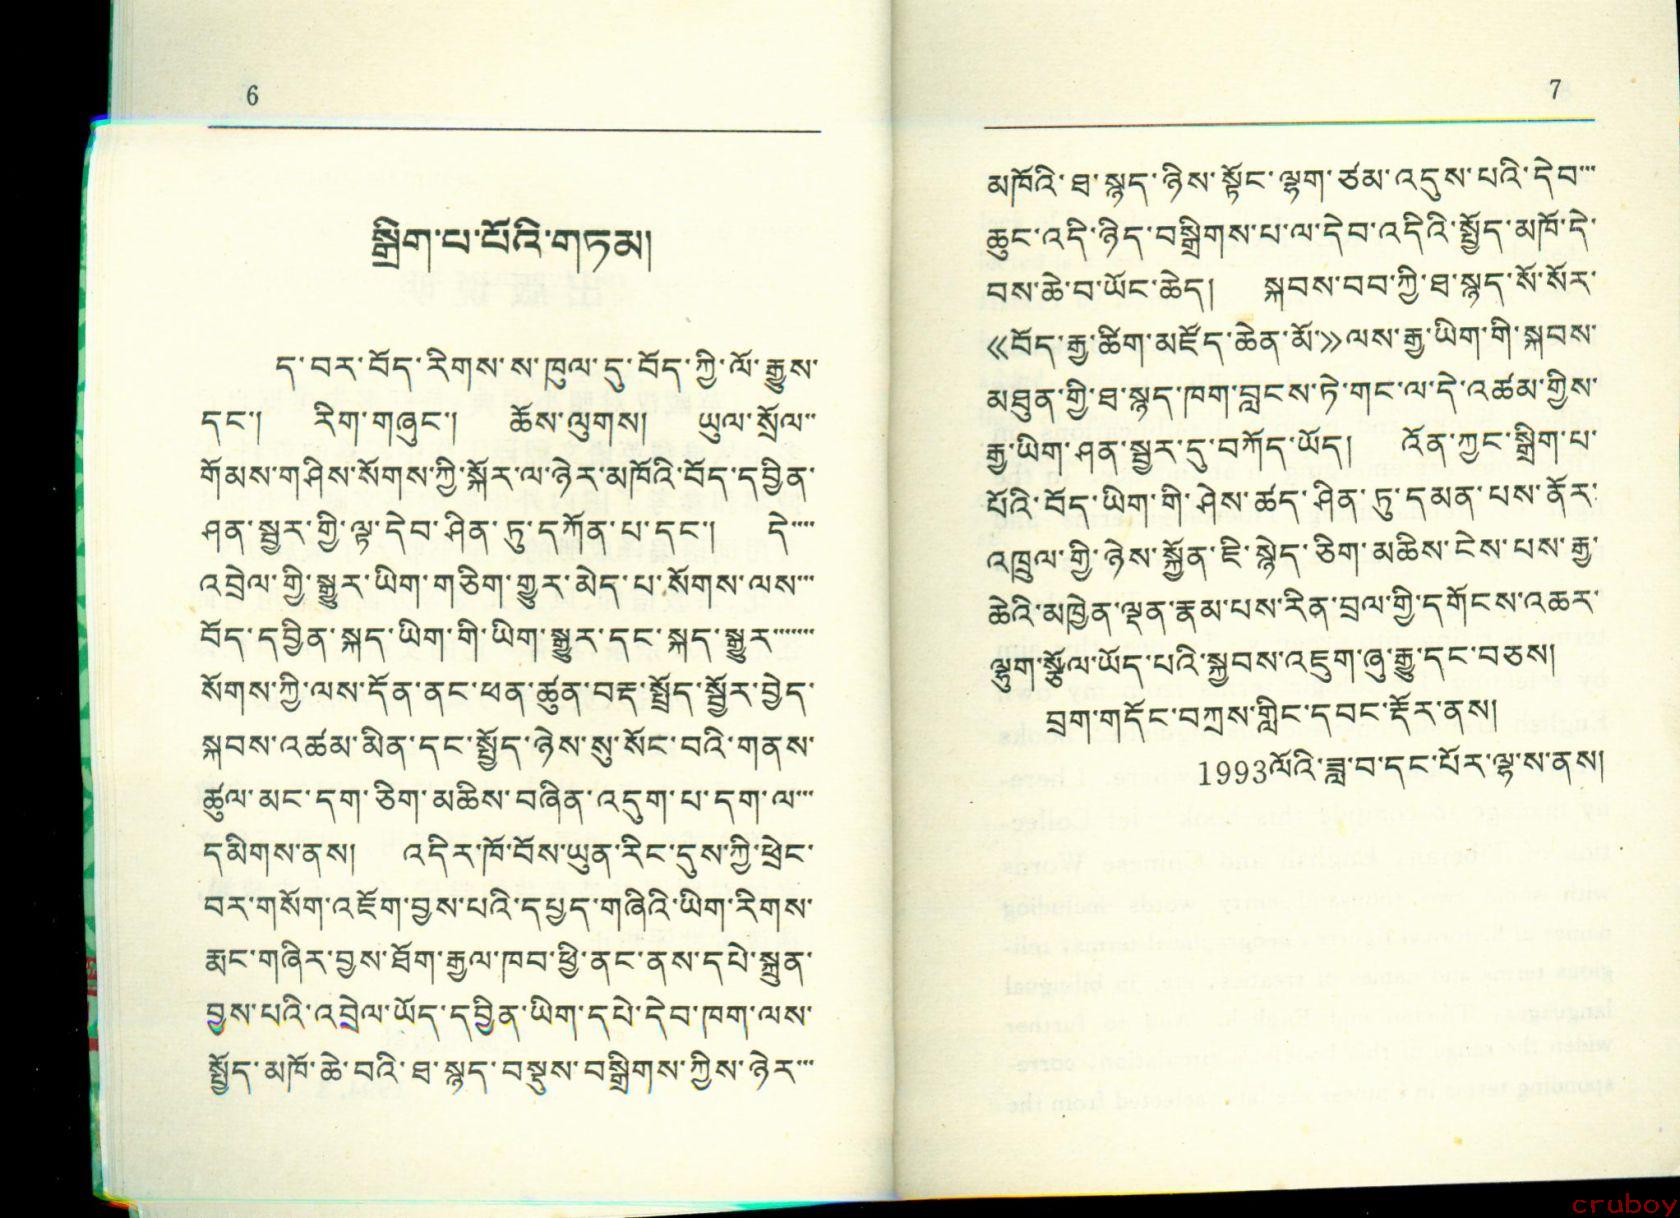 6
སྒྲིག་པ་པོའི་གཏམ།
ད་བར་བོད་རིགས་ས་ཁུལ་དུ་བོད་ཀྱི་ལོ་རྒྱུས་
དང་། རིག་གཞུང་། ཆོས་ལུགས། ཡུལ་སྲོལ་
གོམས་གཤིས་སོགས་ཀྱི་སྐོར་ལ་ཉེར་མཁོའི་བོད་དབྱིན་
ཤན་སྦྱར་གྱི་ལྟ་དེབ་ཤིན་ཏུ་དཀོན་པ་དང་། དེ་
འབྲེལ་གྱི་སྒྱུར་ཡིག་གཅིག་གྱུར་མེད་པ་སོགས་ལས་
བོད་དབྱིན་སྐད་ཡིག་གི་ཡིག་སྒྱུར་དང་སྐད་སྒྱུར་
སོགས་ཀྱི་ལས་དོན་ནང་ཕན་ཚུན་བརྡ་སྤྲོད་སྦྱོར་བྱེད་
སྐབས་འཚམ་མིན་དང་སྤྱོད་ཉེས་སུ་སོང་བའི་གནས་
ཚུལ་མང་དག་ཅིག་མཆིས་བཞིན་འདུག་པ་དག་ལ་
དམིགས་ནས། འདིར་ཁོ་བོས་ཡུན་རིང་དུས་ཀྱི་ཕྲེང་
བར་གསོག་འཇོག་བྱས་པའི་དཔྱད་གཞིའི་ཡིག་རིགས་
རྨང་གཞིར་བྱས་ཐོག་རྒྱལ་ཁབ་ཕྱི་ནང་ནས་དཔེ་སྐྲུན་
བྱས་པའི་འབྲེལ་ཡོད་དབྱིན་ཡིག་དཔེ་དེབ་ཁག་ལས་
སྤྱོད་མཁོ་ཆེ་བའི་ཐ་སྙད་བསྡུས་བསྒྲིགས་ཀྱིས་ཉེར་
7
མཁོའི་ཐ་སྙད་ཉིས་སྟོང་ལྷག་ཙམ་འདུས་པའི་དེབ་
ཆུང་འདི་ཉིད་བསྒྲིགས་པ་ལ་དེབ་འདིའི་སྤྱོད་མཁོ་དེ་
བས་ཆེ་བ་ཡོང་ཆེད། སྐབས་བབ་ཀྱི་ཐ་སྙད་སོ་སོར་
《བོད་རྒྱ་ཚིག་མཛོད་ཆེན་མོ་》ལས་རྒྱ་ཡིག་གི་སྐབས་
མཐུན་གྱི་ཐ་སྙད་ཁག་བླངས་ཏེ་གང་ལ་དེ་འཚམ་གྱིས་
རྒྱ་ཡིག་ཤན་སྦྱར་དུ་བཀོད་ཡོད། འོན་ཀྱང་སྒྲིག་པ་
པོའི་བོད་ཡིག་གི་ཤེས་ཚད་ཤིན་ཏུ་དམན་པས་ནོར་
འཁྲུལ་གྱི་ཉེས་སྐྱོན་ཇི་སྙེད་ཅིག་མཆིས་ངེས་པས་རྒྱ་
ཆེའི་མཁྱེན་ལྡན་རྣམ་པས་རིན་བྲལ་གྱི་དགོངས་འཆར་
ལྷུག་སྩོལ་ཡོད་པའི་སྐྱབས་འཇུག་ཞུ་རྒྱུ་དང་བཅས།
བྲག་གདོང་བཀྲས་གླིང་དབང་རྡོར་ནས།
1993ལོའི་ཟླ་བ་དང་པོར་ལྷ་ས་ནས།
cruboy